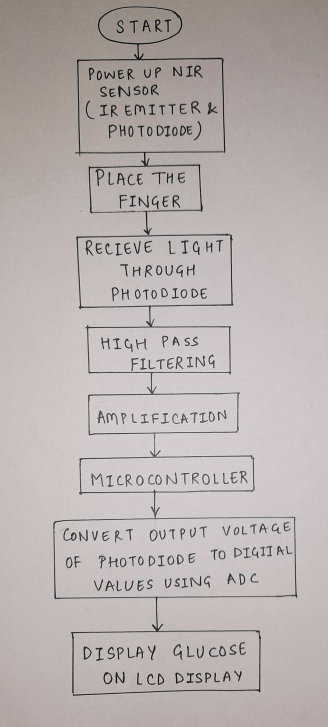 START
POWER UP NIR
SENSOR
(IR EMITTER &
PHOTODIODE)
PLACE THE
FINGER
RECIEVE LIGHT
THROUGH
PHOTODIODE
HIGH PASS
FILTERING
AMPLIFICATION
MICROCONTROLLER
CONVERT OUTPUT VOLTAGE
OF PHOTODIODE TO DIGITAL
VALUES USING ADC
DISPLAY GLUCOSE
ON LCD DISPLAY